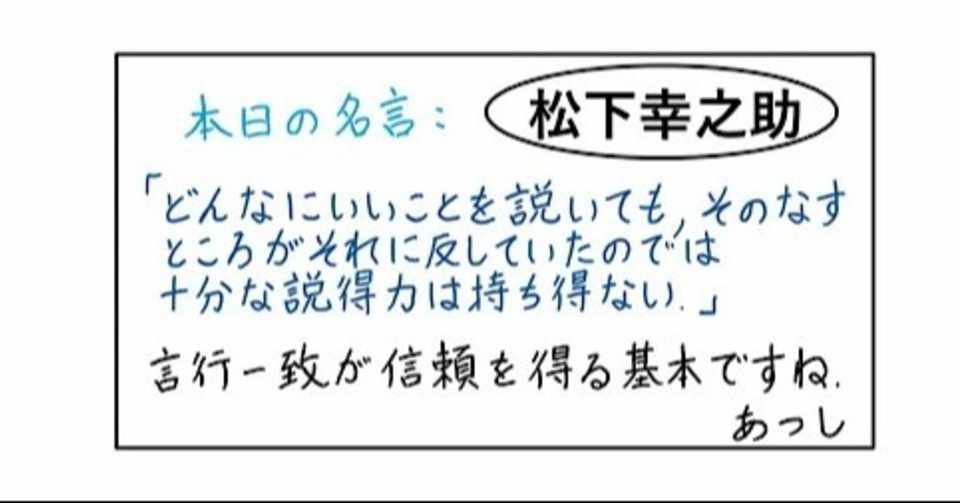 本日の名言： 松下幸之助
「どんなにいいことを説いても,そのなす
ところがそれに反していたのでは
十分な説得力は持ち得ない.」
言行一致が信頼を得る基本ですね.
あっし